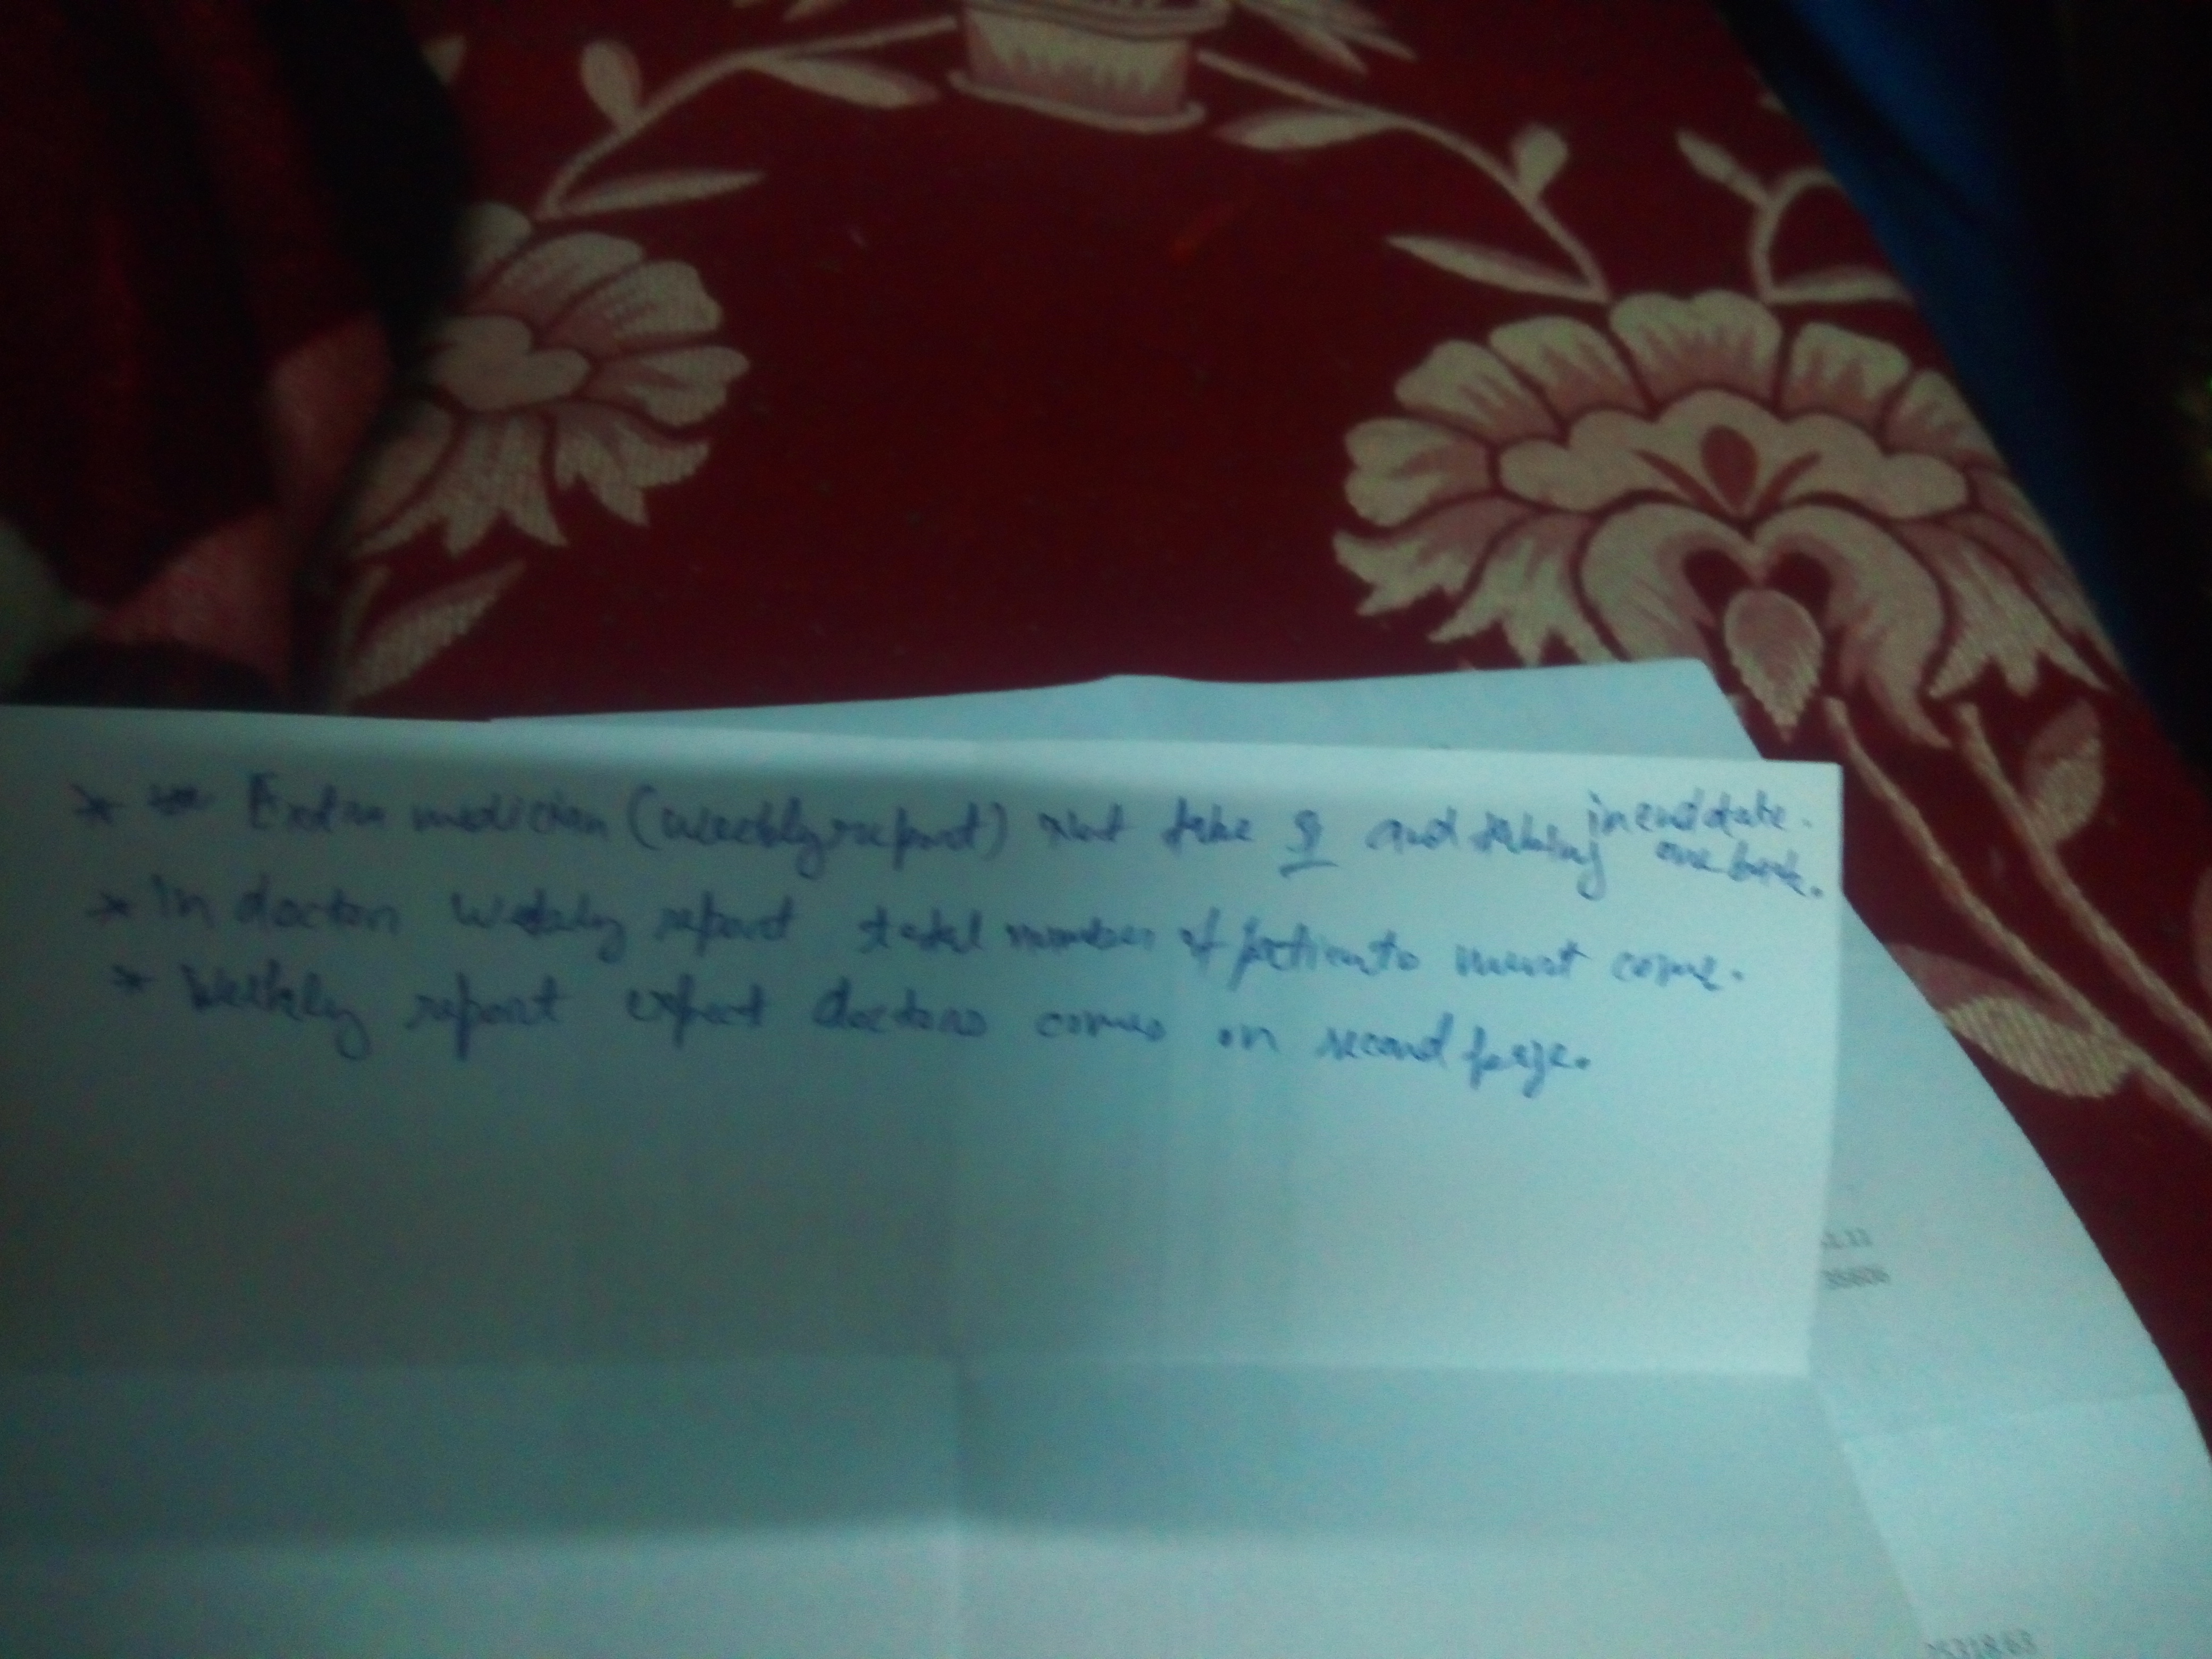 * Extra medician (weekly report) not take & and taking in end date.
one back.
* In doctor weekly report total number of patients must come.
* Weekly report expect doctors comes on second page.
35606
25318.63